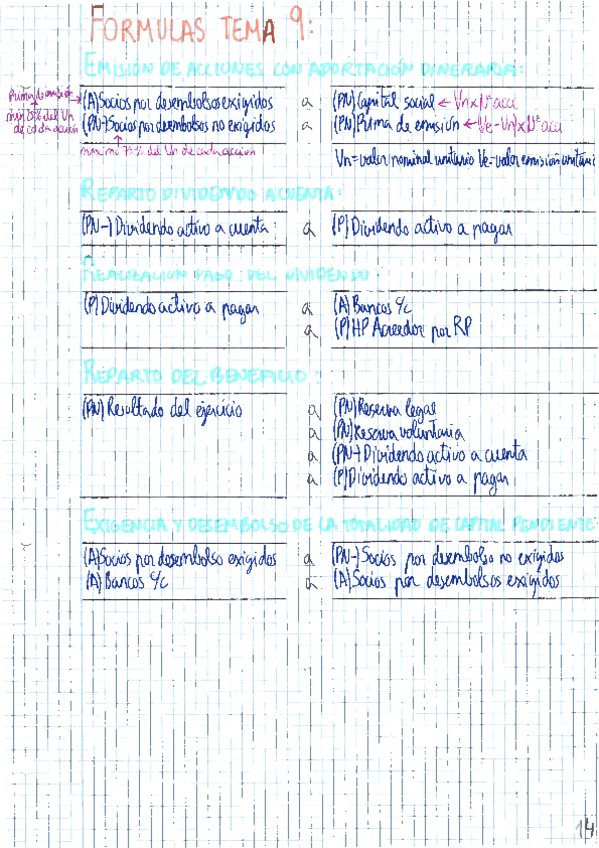 FORMULAS TEMA 9:
EMISIÓN DE ACCIONES CON APORTACIÓN DINERARIA:
Prima de emisión
min 25% del Vn de cada acción
(A)Socios por desembolsos exigidos a (PN)Capital social ← Vn x Nº acci
(PN-)Socios por desembolsos no exigidos a (PN)Prima de emisión ← (Ve-Vn)xNº acci
maximo 75% del Vn de cada accion
Vn=valor nominal unitario Ve=valor emisión unitario
REPARTO DIVIDENDO A CUENTA:
(PN-) Dividendo activo a cuenta a (P) Dividendo activo a pagar
REALIZACION PAGO DEL DIVIDENDO:
(P) Dividendo activo a pagar a (A) Bancos c/c
a (P) HP Acreedor por RP
REPARTO DEL BENEFICIO:
(PN) Resultado del ejercicio a (PN)Reserva legal
a (PN)Reserva voluntaria
a (PN-)Dividendo activo a cuenta
a (P)Dividendo activo a pagar
EXIGENCIA Y DESEMBOLSO DE LA TOTALIDAD DE CAPITAL PENDIENTE
(A)Socios por desembolso exigidos a (PN-) Socios por desembolso no exigidos
(A) Bancos c/c a (A) Socios por desembolsos exigidos
14